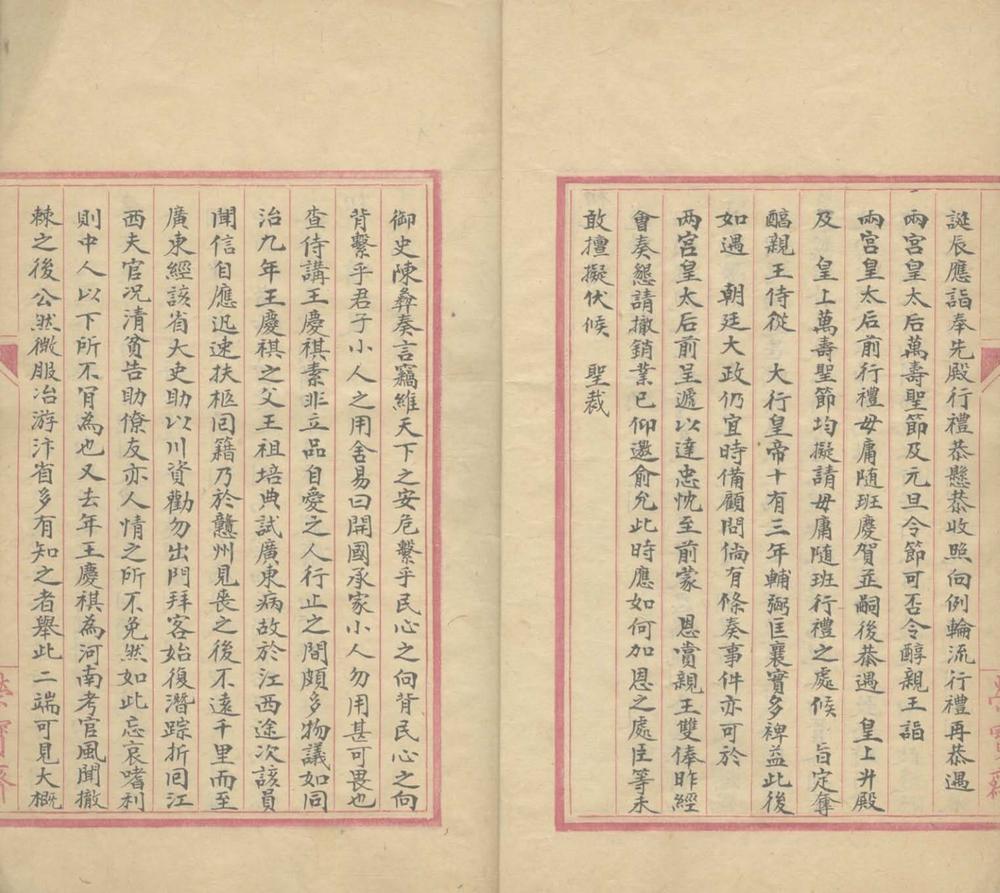 誕辰應詣奉先殿行禮恭懸恭收照向例輪流行禮再恭遇
兩宮皇太后萬壽聖節及元旦令節可否令醇親王詣
兩宮皇太后前行禮毋庸随班慶賀並嗣後恭遇 皇上升殿
及 皇上萬壽聖節均擬請毋庸随班行禮之處候 旨定奪
醇親王侍從 大行皇帝十有三年輔弼匡襄實多裨益此後
如遇 朝廷大政仍宜時備顧問倘有條奏事件亦可於
两宫皇太后前呈遞以達忠忱至前蒙 恩賞親王雙俸昨經
會奏懇請撤銷業已仰邀俞允此時應如何加恩之處臣等未
敢擅擬伏候 聖裁
御史陳彝奏言竊維天下之安危繫乎民心之向背民心之向
背繫乎君子小人之用舍易曰開國承家小人勿用甚可畏也
查侍講王慶祺素非立品自愛之人行止之間頗多物議如同
治九年王慶祺之父王祖培典試廣東病故於江西途次該員
聞信自應迅速扶柩回籍乃於贛州見喪之後不遠千里而至
廣東經該省大吏助以川資勸勿出門拜客始復潛踪折回江
西夫官况清貧告助僚友亦人情之所不免然如此忘哀嗜利
則中人以下所不肯為也又去年王慶祺為河南考官風聞撤
棘之後公然微服冶游汴省多有知之者舉此二端可見大概